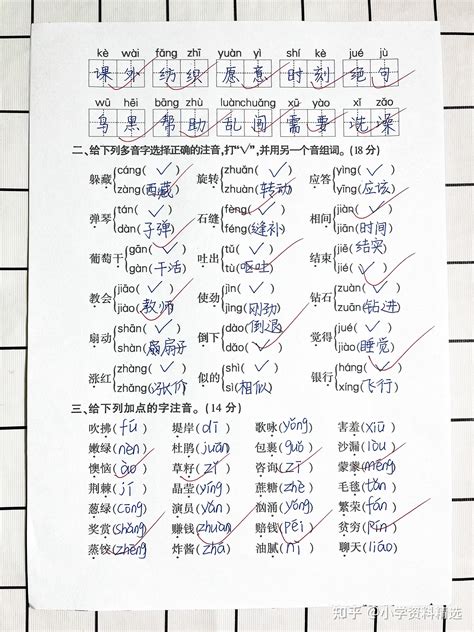 kè wài fāng zhī yuàn yì shí kè jué jù
课外 纺织 愿意 时刻 绝句
wū hēi bāng zhù luànchuǎng xū yào xǐ zǎo
乌黑 帮助 乱闯 需要 洗澡
二、给下列多音字选择正确的注音,打“√”,并用另一个音组词。(18 分)
躲藏{cáng( ✓ ) 旋转{zhuǎn( ✓ ) 应答{yìng( ✓ )
zàng(西藏) zhuàn(转动) yīng(应该)
弹琴{tán( ✓ ) 石缝{fèng( ✓ ) 相间{jiàn( ✓ )
dàn(子弹) féng(缝补) jiān(时间)
葡萄干{gān( ✓ ) 吐出{tǔ( ✓ ) 结束{jiē(结实)
gàn(干活) tù(呕吐) jié( ✓ )
教会{jiāo( ✓ ) 使劲{jìn( ✓ ) 钻石{zuàn( ✓ )
jiào(教师) jìng(刚劲) zuān(钻进)
扇动{shān( ✓ ) 倒下{dào(倒退) 觉得{jué( ✓ )
shàn(扇扇子) dǎo( ✓ ) jiào(睡觉)
涨红{zhàng( ✓ ) 似的{shì( ✓ ) 银行{háng( ✓ )
zhǎng(涨价) sì(相似) xíng(飞行)
三、给下列加点的字注音。(14 分)
吹拂(fú) 堤岸(dī) 歌咏(yǒng) 害羞(xiū)
嫩绿(nèn) 杜鹃(juān) 包裹(guǒ) 沙漏(lòu)
懊恼(ào) 草籽(zǐ) 咨询(zī) 蒙蒙(méng)
荆棘(jí) 晶莹(yíng) 蔗糖(zhè) 毛毯(tǎn)
葱绿(cōng) 演员(yǎn) 汹涌(yǒng) 繁荣(fán)
奖赏(shǎng) 赚钱(zhuàn) 赔钱(péi) 贫穷(pín)
蒸饺(zhēng) 炸酱(zhá) 油腻(nì) 聊天(liáo)
知乎 @小学资料精选